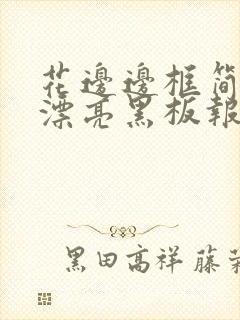 花邊邊框简
漂亮黑板報
黑田高祥 藤